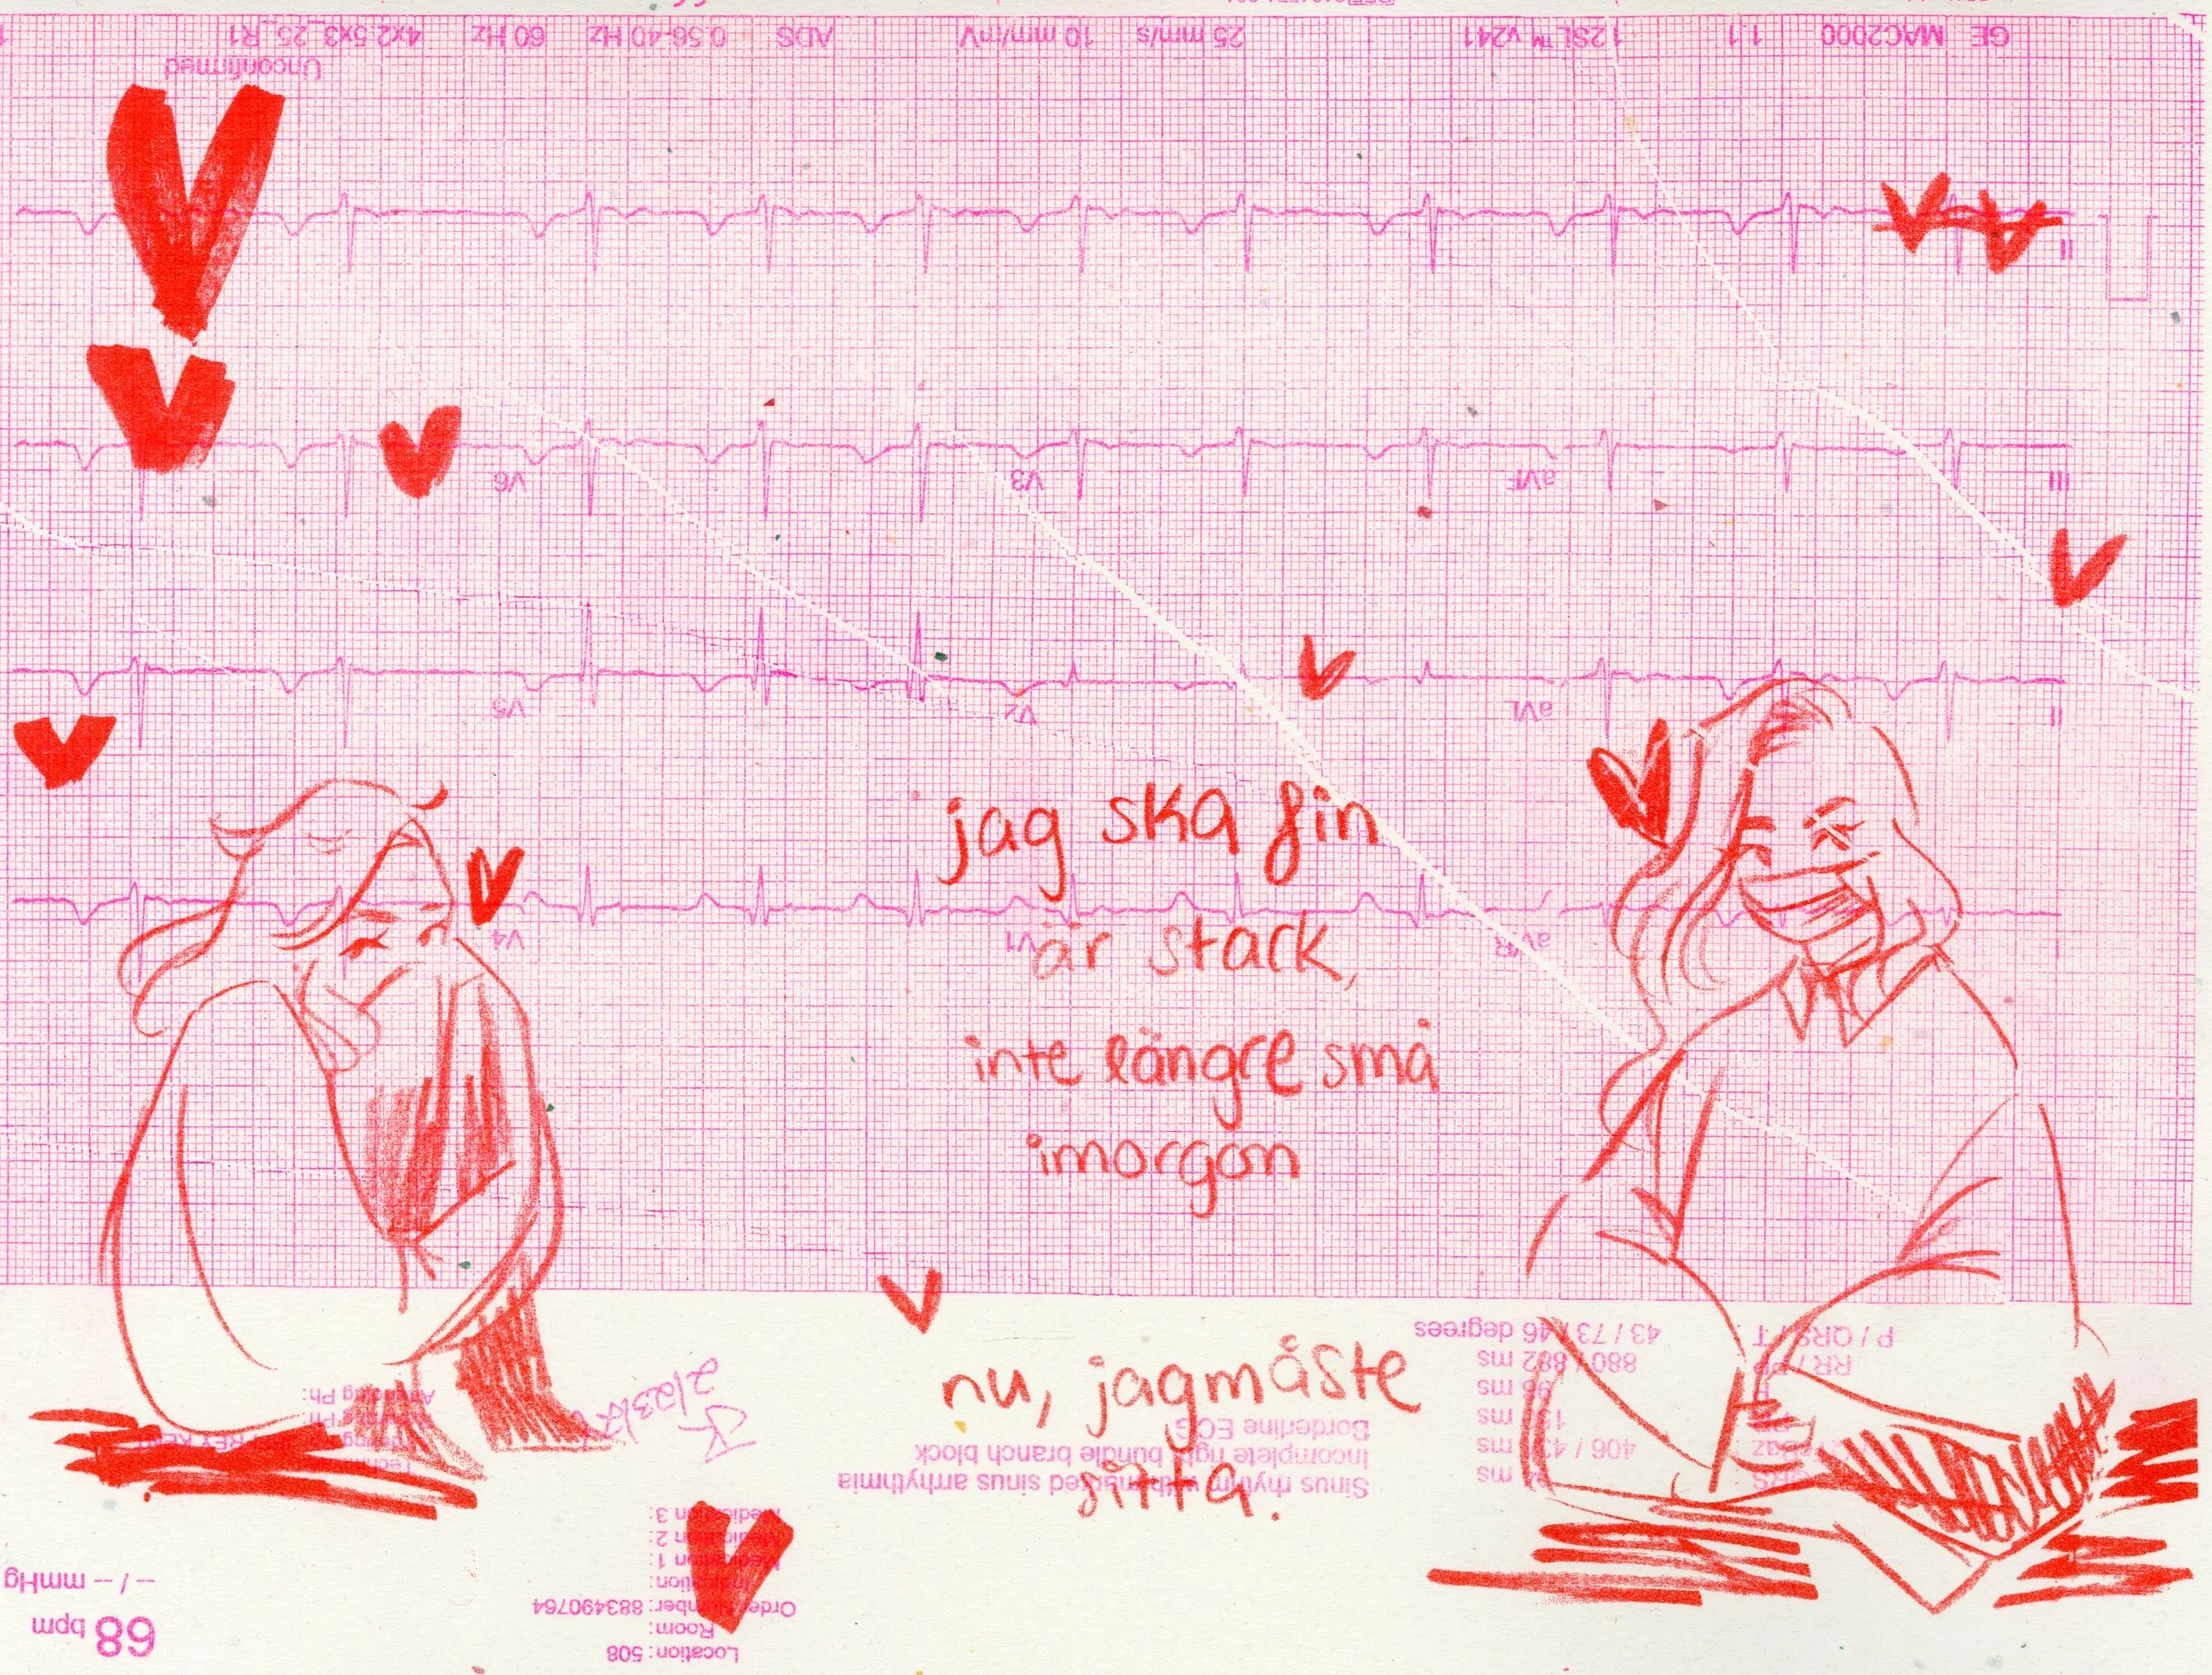 GE MAC2000 1.1 12SL™ v241 25 mm/s 10 mm/mV ADS 0.56-40 Hz 60 Hz 4x2.5x3_25_R1
Unconfirmed
II
V6 V3 aVF III
V5 V2 aVL II
V4 V1 aVR
jag ska fin
är stark,
inte längre små
imorgon
nu, jagmåste
sitta.
P / QRS / T 43 / 73 / 46 degrees
RR / 880 / 882 ms
ms
ms
406 / ms
ms
Borderline ECG
Incomplete right bundle branch block
Sinus rhythm with marked sinus arrhythmia
Medication 3:
Medication 2:
Medication 1:
Order Number: 883490764
Room:
Location: 508
-- / -- mmHg
68 bpm